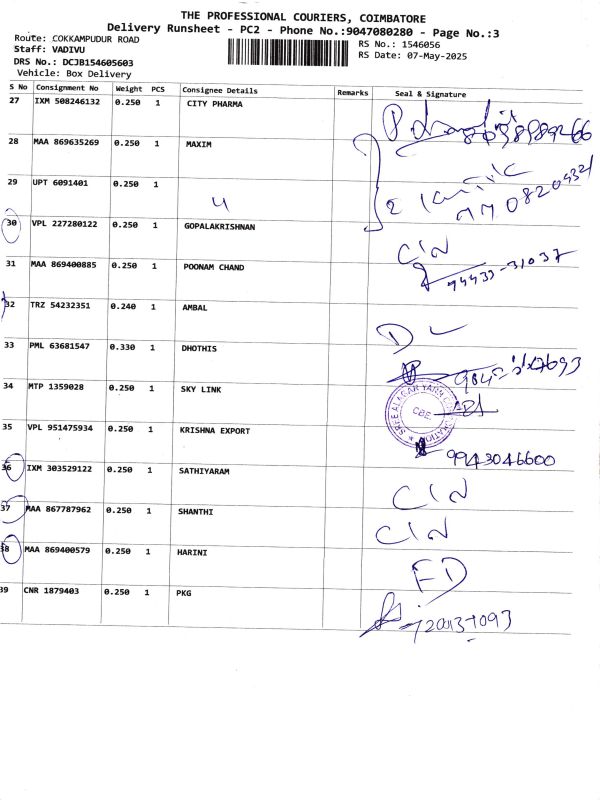 THE PROFESSIONAL COURIERS, COIMBATORE
Delivery Runsheet - PC2 - Phone No.:9047080280 - Page No.:3
Route: COKKAMPUDUR ROAD
Staff: VADIVU
DRS No.: DCJB154605603
Vehicle: Box Delivery
RS No.: 1546056
RS Date: 07-May-2025
S No Consignment No Weight PCS Consignee Details Remarks Seal & Signature
27 IXM 508246132 0.250 1 CITY PHARMA
28 MAA 869635269 0.250 1 MAXIM
29 UPT 6091401 0.250 1
30 VPL 227280122 0.250 1 GOPALAKRISHNAN
31 MAA 869400885 0.250 1 POONAM CHAND 94433-31037
32 TRZ 54232351 0.240 1 AMBAL
33 PML 63681547 0.330 1 DHOTHIS
34 MTP 1359028 0.250 1 SKY LINK CBE
35 VPL 951475934 0.250 1 KRISHNA EXPORT 9943046600
36 IXM 303529122 0.250 1 SATHIYARAM
37 MAA 867787962 0.250 1 SHANTHI
38 MAA 869400579 0.250 1 HARINI
39 CNR 1879403 0.250 1 PKG